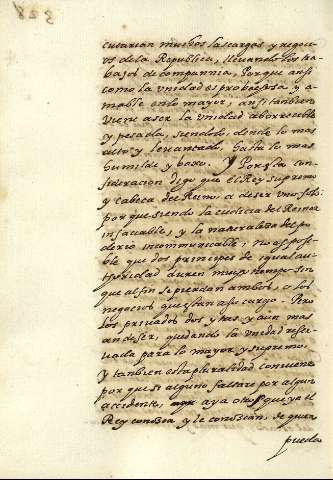 cutarian muchos las cargas, y negoci
os de la Republica, lleuando los tra-
bajos de compannia, Porque ansi
como la vnidad es prouechosa y a-
mable en lo mayor, ansi tanbien
viene a ser la vnidad aborrecible
y pesada, siendolo, desde lo mas
alto y leuantado, hasta lo mas
humilde y baxo. Y Por esta con
sideracion digo que el Rey supremo
y cabeca del Reino, a de ser vno solo
porque siendo la cudicia del Reinar
insaciable, y la naturaleza del po
derio incommunicable, no es posi
ble que dos principes de igual au-
thoridad duren mucho tiempo sin
que al fin se pierdan ambos, o los
negocios que estan a su cargo. Pero
los priuados dos y tres y aun mas
an de ser, quedando la vnidad reser
uada para lo mayor y supremo.
Y tanbien esta pluralidad conuiene
por que si alguno faltare por algun
accidente, aya otros que ya el
Rey conozca y le conozcan, de quien
pueda